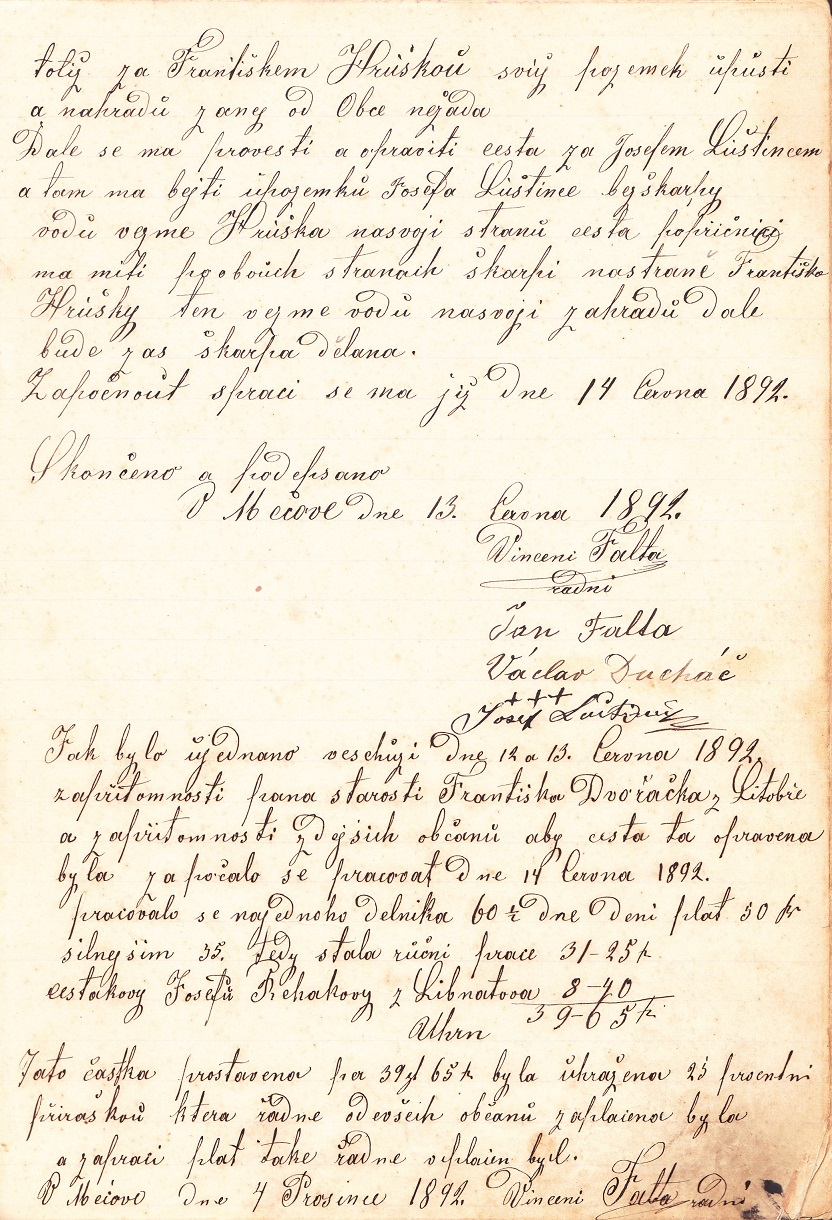 totiž za Františkem Hrüškoǔ svüj pozemek üpüsti
a nahradǔ zanej od Obce nežáda
Dale se ma provesti a opraviti cesta za Josefem Lüštincem
a tam ma bejti üpozemkǔ Josefa Lüštince bezškarpy
vodǔ vezme Hrüška nasvoji stranǔ cesta popřičnici
ma miti po oboǔch stranach škarpi nastraně Františka
Hrüšky ten vezme vodǔ nasvoji zahradǔ dale
bude zas škarpa dělana.
Započnoǔt spraci se ma již dne 14 Června 1892.
Skončeno a podepsano
V Mečove dne 13. Června 1892.
Vincenc Falta
radni
Jan Falta
Václav Ducháč
+++
Josef Lüštinec
Jak bylo üjednano veschǔzi dne 12 a 13. Června 1892.
zapřitomnosti pana starosti Františka Dvořáčka z Litobře
a zapřitomnosti zdejšich občanǔ aby cesta ta opravena
byla započalo se pracovat dne 14 Června 1892.
pracovalo se najednoho delnika 60 ½ dne Deni plat 50 kr
silnejšim 55. tedy stala rǔčni prace 31-25 k
cestakovy Josefǔ Řehakovy z Libnatova 8-40
Uhrn 39-65 k
Tato častka prostavena per 39 zl 65 k byla ǔhražena 25 procentni
přiraškoǔ ktera řadne odevšeih občanǔ zaplacena byla
a zapraci plat take řadne vplacen byl.
V Mečove dne 4 Prosince 1892. Vincenc Falta radni